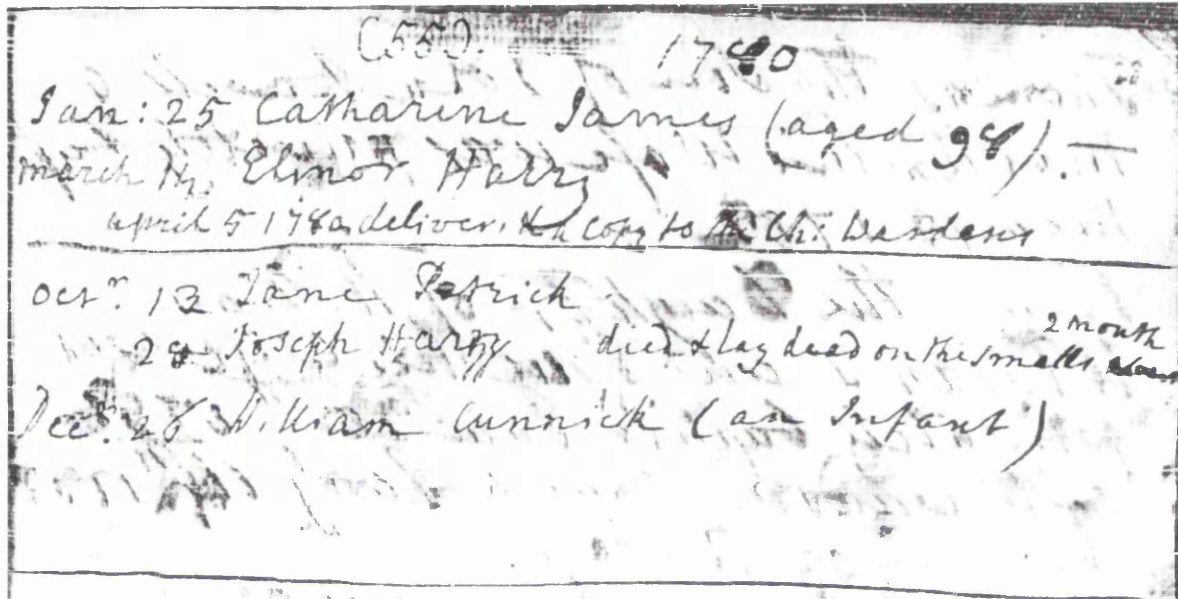 1780
Jan: 25 Catharine James (aged 98). —
march Elinor Harry
april 5 1780 deliver. copy to the Ch: Wardens
Octr. 13 Jane Patrick
28 Joseph Harry died & lay dead on the Smalls
2 month
Decr. 26 William Cunnick (an Infant)